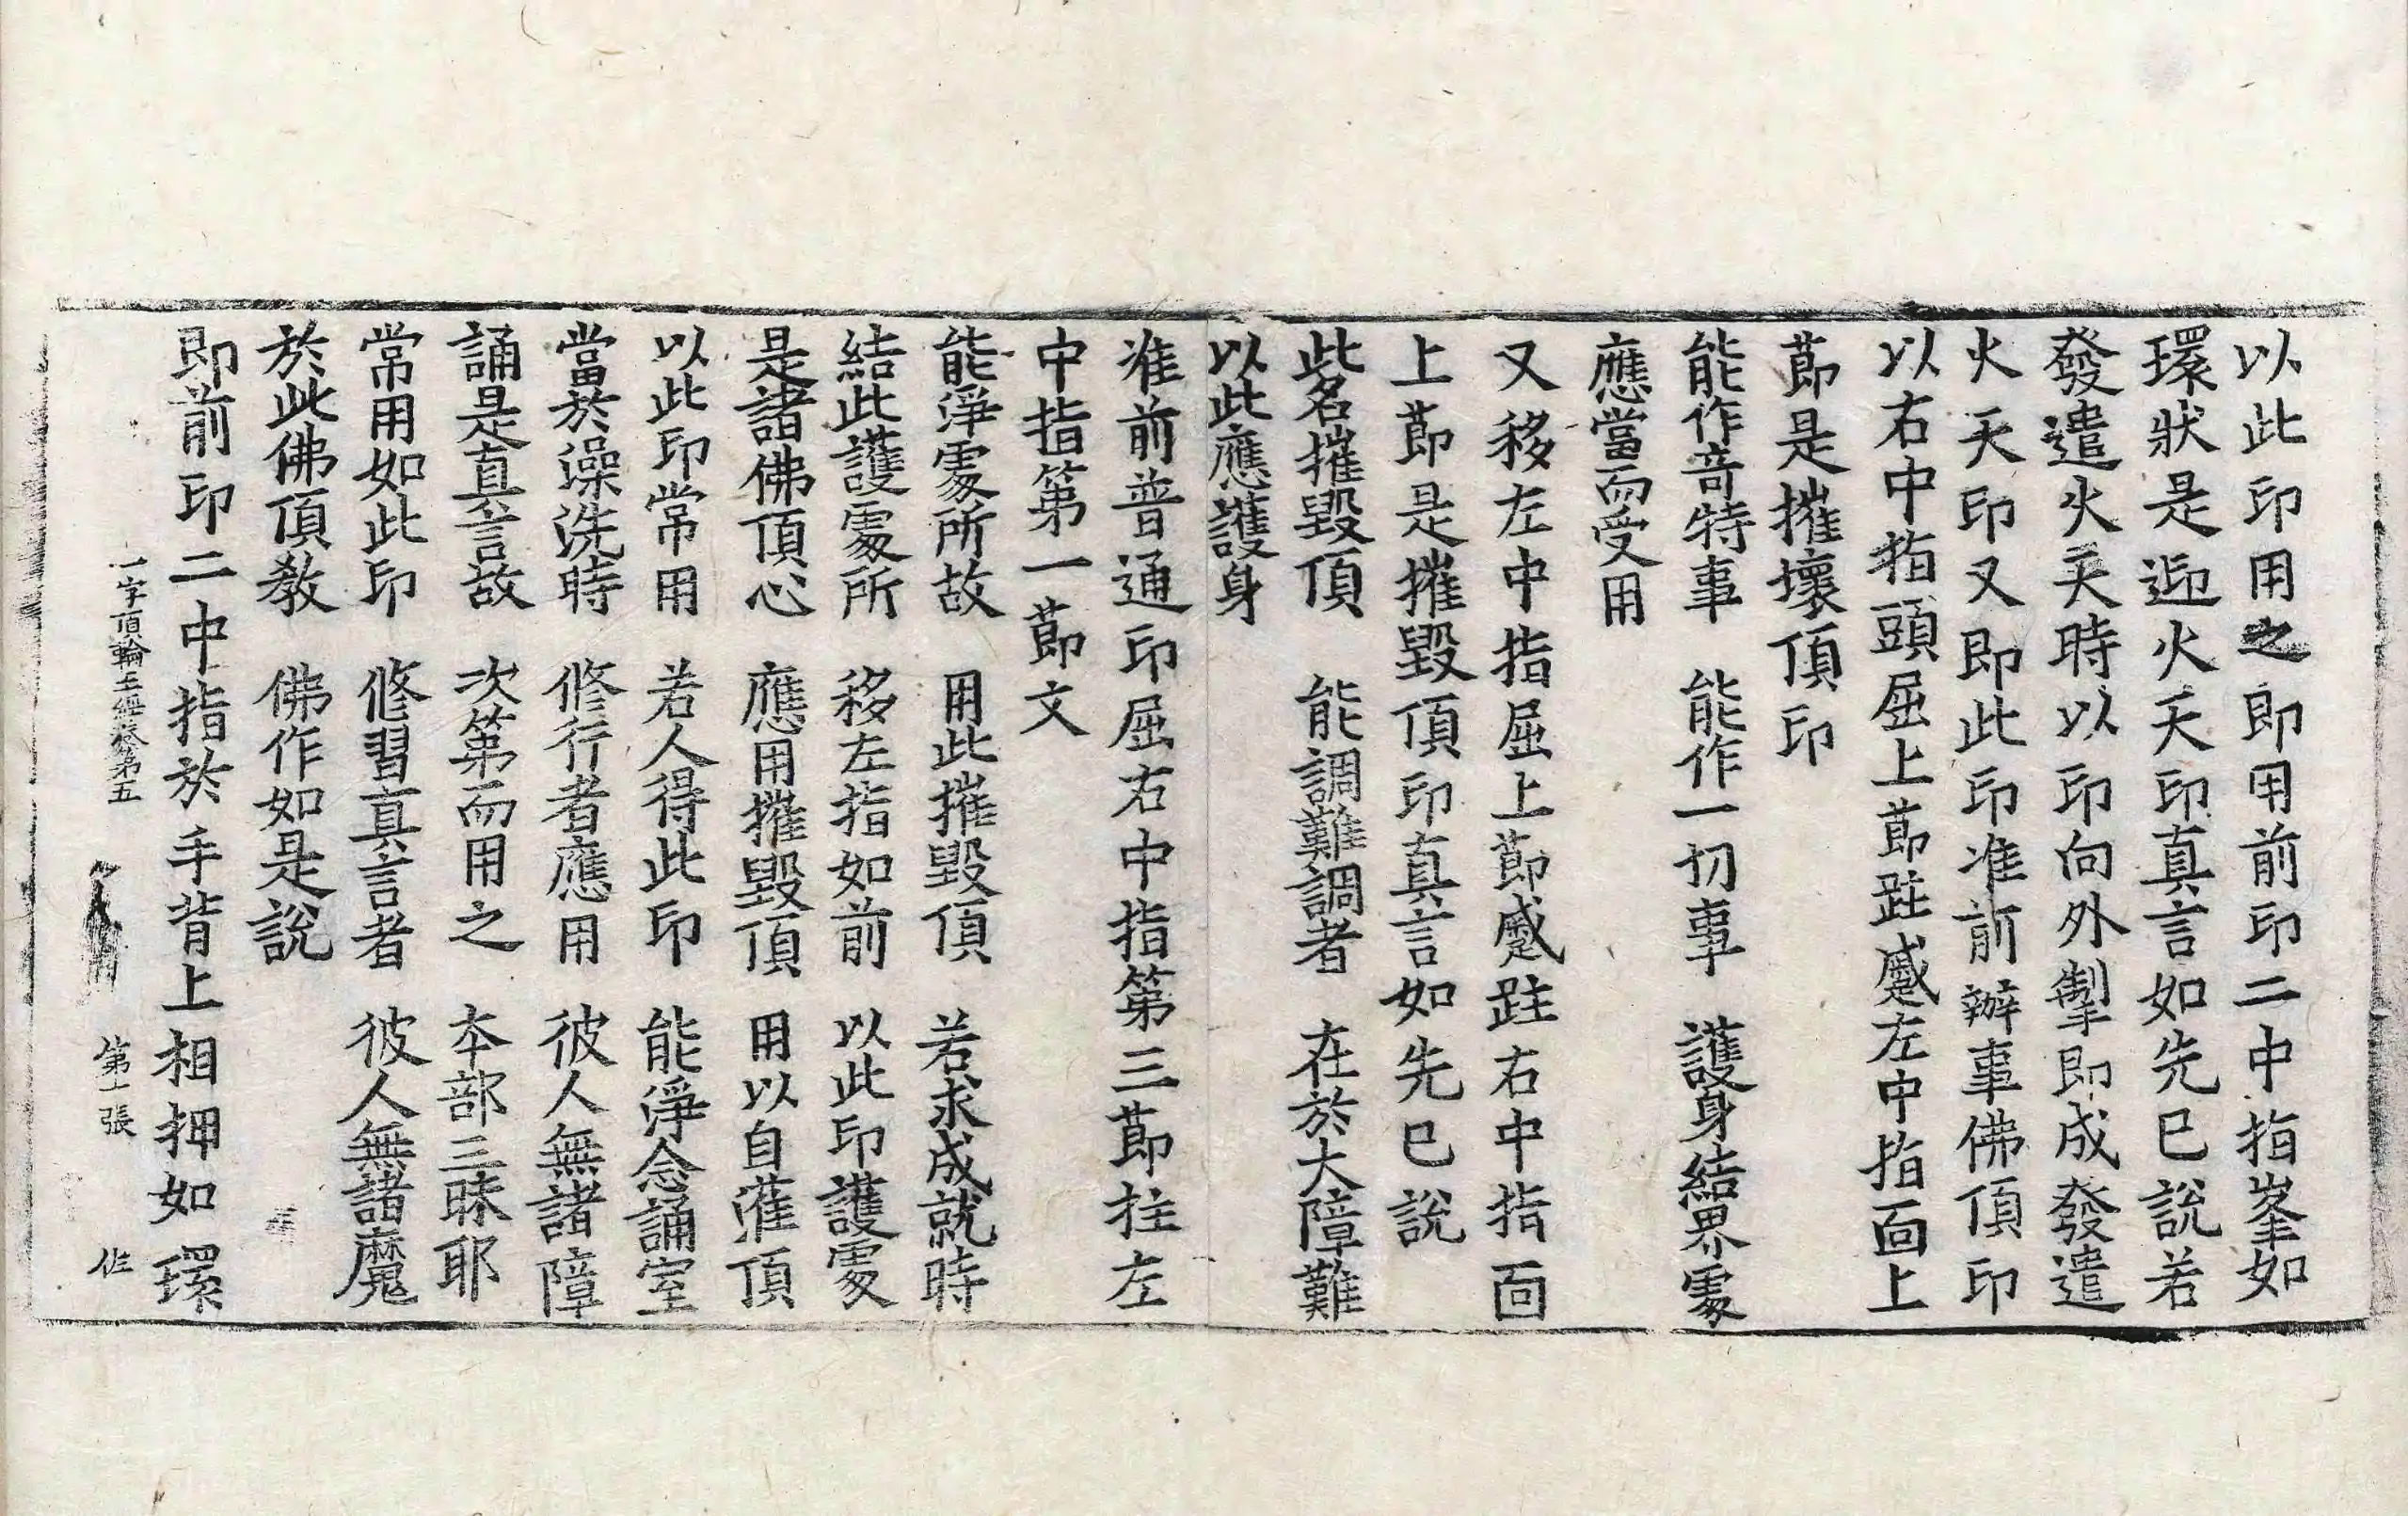 以此印用之即用前印二中指峯如
環狀是迎火天印真言如先已說若
發遣火天時以印向外掣即成發遣
火天印又即此印准前辦事佛頂印
以右中指頭屈上莭跓蹙左中指面上
莭是摧壞頂印
能作竒特事　能作一切事　護身結界處
應當而受用
又移左中指屈上莭蹙跓右中指面
上莭是摧毀頂印真言如先已說
此名摧毀頂　能調難調者　在於大障難
以此應護身
准前普通印屈右中指第三莭拄左
中指第一莭文
能淨處所故　用此摧毀頂　若求成就時
結此護處所　移左指如前　以此印護處
是諸佛頂心　應用摧毀頂　用以自灌頂
以此印常用　若人得此印　能淨念誦室
當於澡洗時　修行者應用　彼人無諸障
誦是真言故　次第而用之　本部三昧耶
常用如此印　修習真言者　彼人無諸魔
於此佛頂教　佛作如是說
一字頂輪王經卷第五　第十張
即前印二中指於手背上相押如環